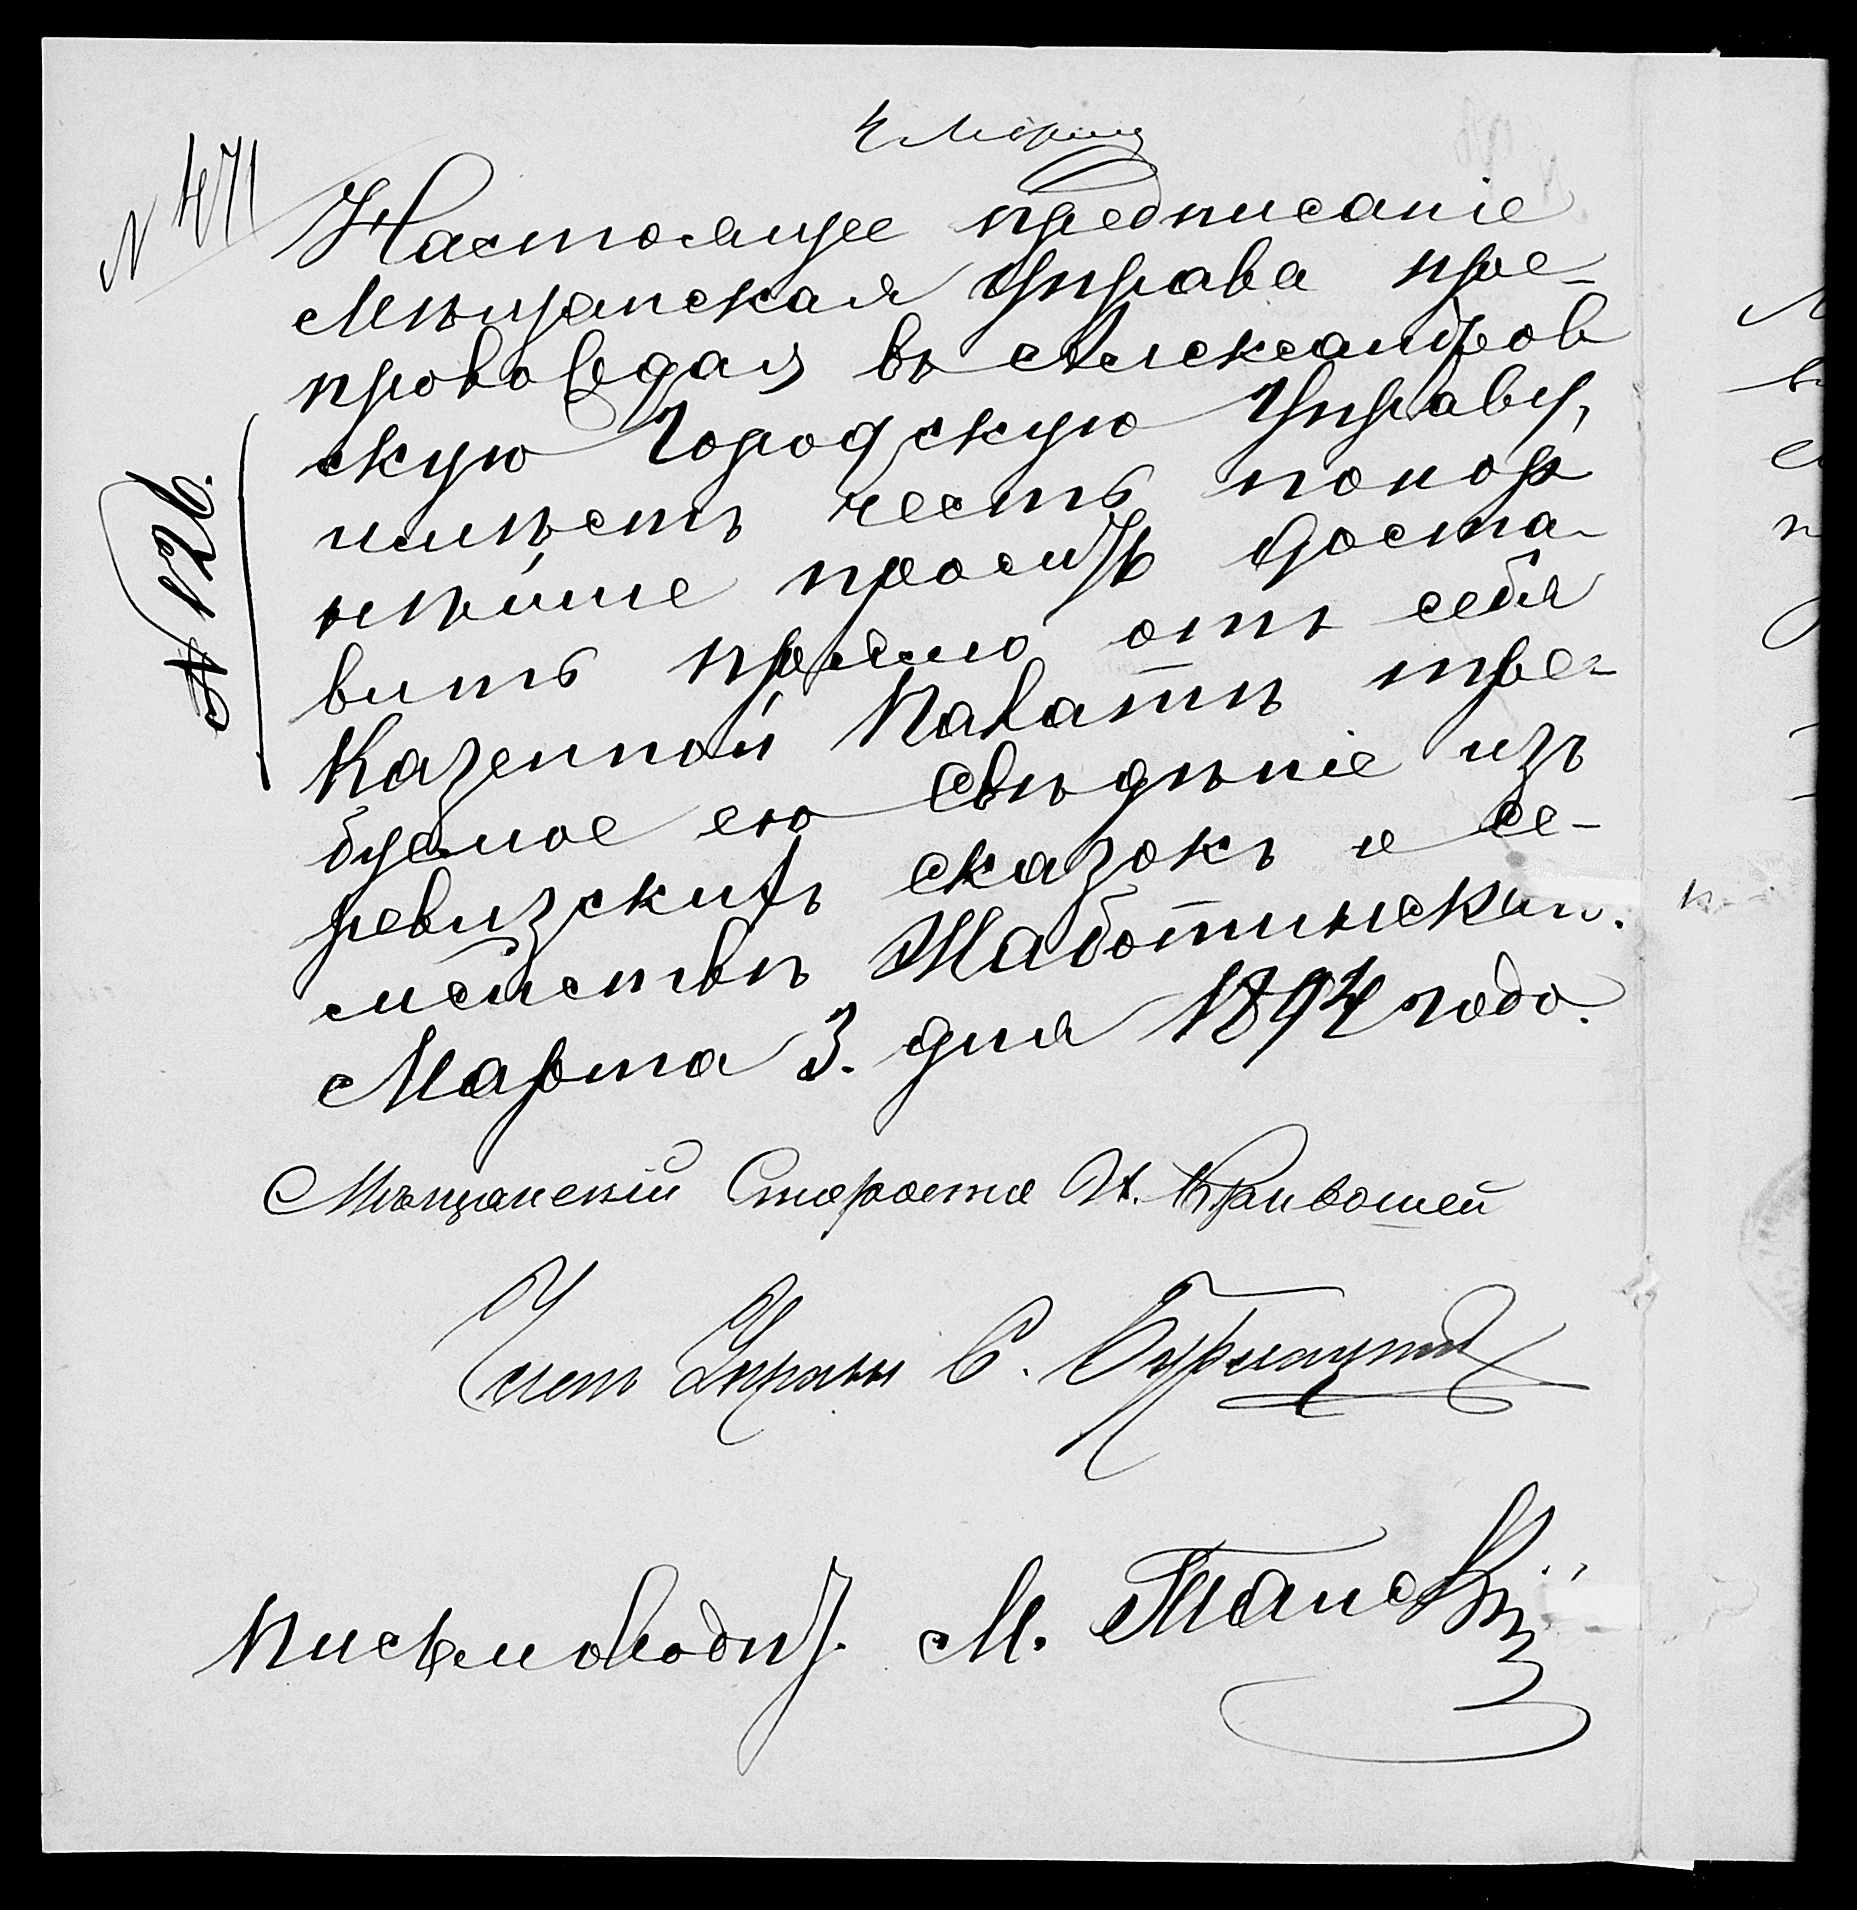 4 Марта
N 471
Настоящее предписаніе
Мѣщанская Управа пре-
провождая въ Александров
скую Городскую Управу,
имѣетъ честь покор
нѣйше просить доста-
вить прямо отъ себя
Казенной Палатѣ тре-
буемое ею свѣдѣніе изъ
ревизскихъ сказокъ о се-
мействѣ Жаботинских.
Марта 3. дня 1894 года.
№ 126.
Мѣщанскій Староста И. Кривошей
Член Управы С.
Письмоводит. М.